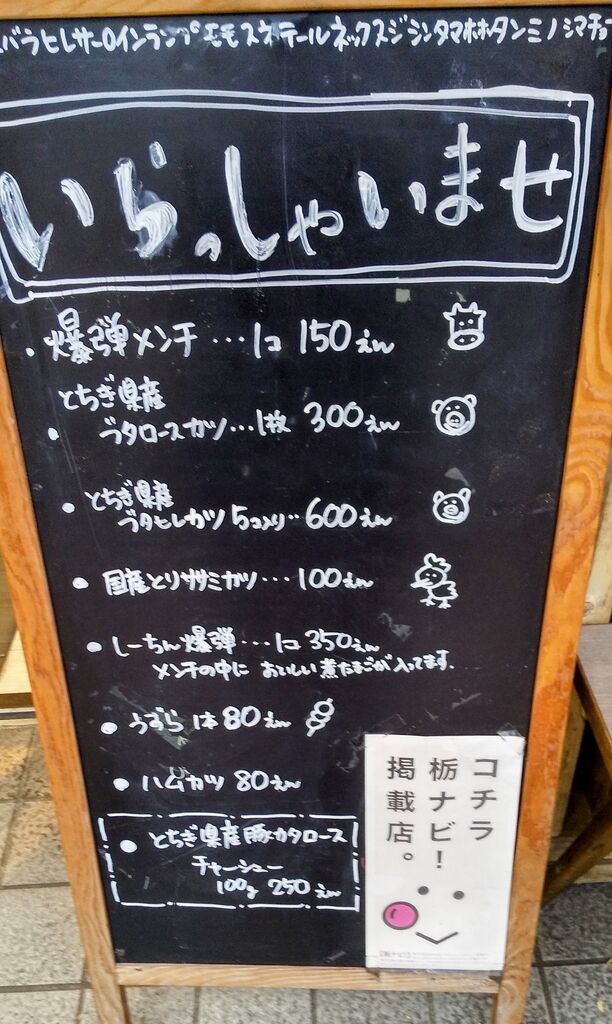 バラヒレサーロインランプモモスネテールネックスジシンタマホホタンミノシマチョ
いらっしゃいませ
・爆弾メンチ…1コ 150えん
とちぎ県産
・ブタロースカツ…1枚 300えん
・とちぎ県産
ブタヒレカツ5コ入り…600えん
・国産とりササミカツ…100えん
・しーちん爆弾…1コ 350えん
メンチの中に おいしい煮たまごが入ってます.
・うずら 1本 80えん
・ハムカツ 80えん
・とちぎ県産豚カタロース
チャーシュー
100g 250えん
コチラ
栃ナビ!
掲載店。